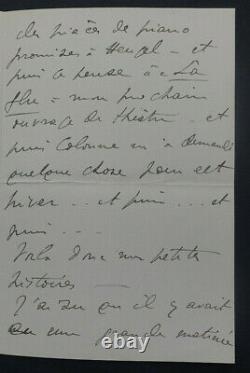 des pièces de piano
promises à Heugel - et
puis je pense à « La
Glu » mon prochain
ouvrage de théâtre - et
puis Colonne m'a demandé
quelque chose pour cet
hiver... et puis... et
puis....
Voilà donc mes petites
histoires —
J'ai su qu'il y avait
eu une grande matinée